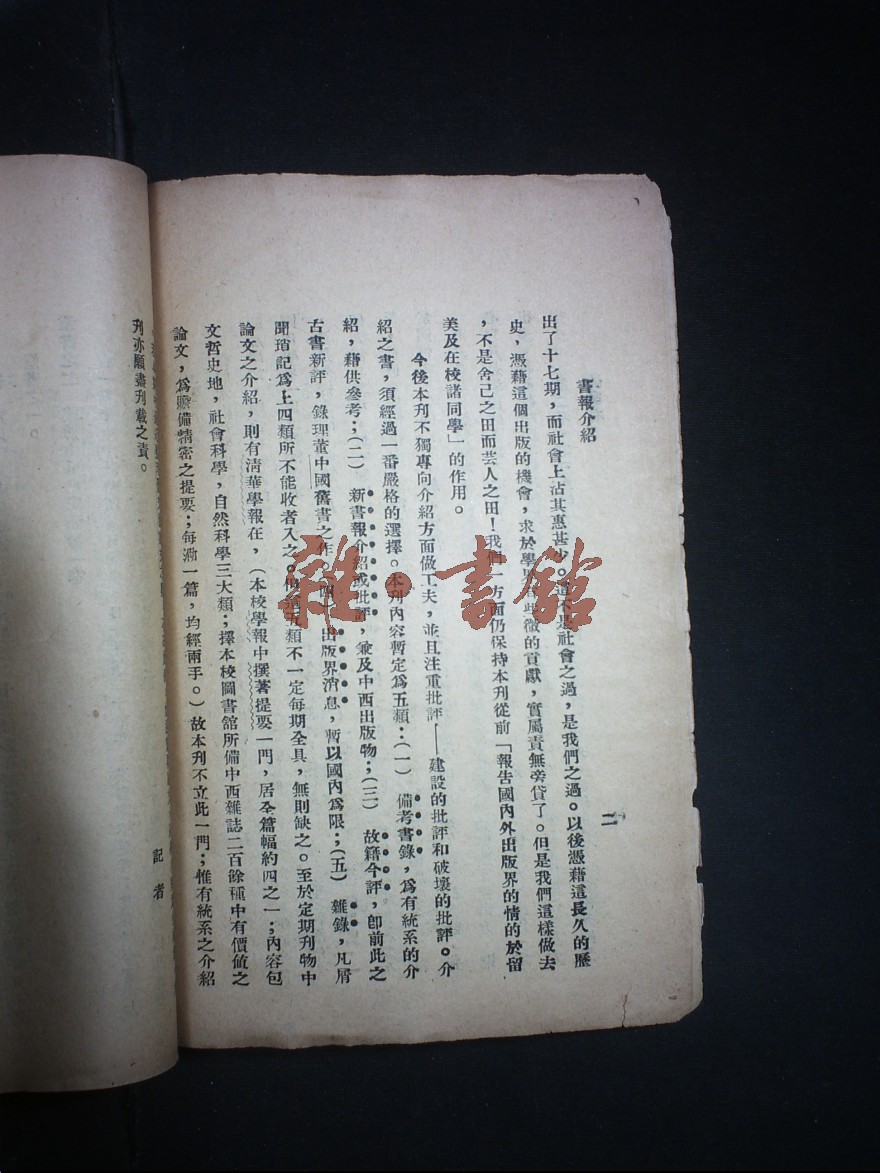 書報介紹
二
出了十七期，而社會上沾其惠甚少。這不是社會之過，是我們之過。以後憑藉這長久的歷
史，憑藉這個出版的機會，求於學界有些微的貢獻，實屬責無旁貸了。但是我們這樣做去
，不是舍己之田而芸人之田！我們一方面仍保持本刊從前「報告國內外出版界的情的於留
美及在校諸同學」的作用。
今後本刊不獨專向介紹方面做工夫，並且注重批評——建設的批評和破壞的批評。介
紹之書，須經過一番嚴格的選擇。本刊內容暫定為五類：（一）備考書錄，為有統系的介
紹，藉供參考；（二）新書報介紹或批評，兼及中西出版物；（三）故籍今評，卽前此之
古書新評，錄理董中國舊書之作。（四）出版界消息，暫以國內為限；（五）雜錄，凡屑
聞瑣記為上四類所不能收者入之。但這五類不一定每期全具，無則缺之。至於定期刊物中
論文之介紹，則有清華學報在，（本校學報中撰著提要一門，居全篇幅約四之一；內容包
文哲史地，社會科學，自然科學三大類；擇本校圖書館所備中西雜誌二百餘種中有價值之
論文，為贍備精密之提要；每泐一篇，均經兩手。）故本刊不立此一門；惟有統系之介紹
刊亦願盡刊載之責。
記者
雜·書館